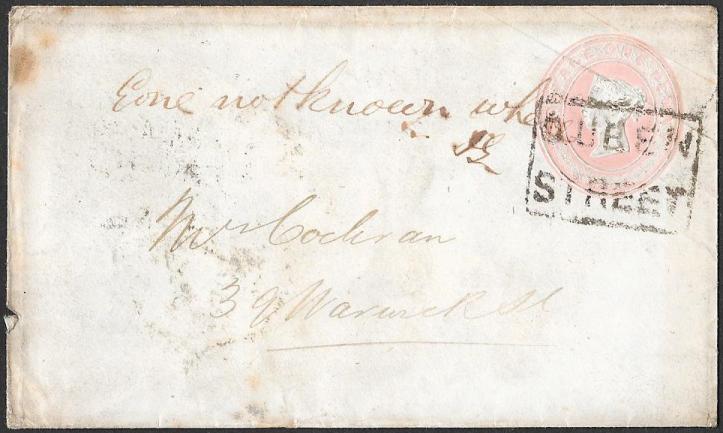 Gone not known who
QUEEN
STREET
Mrs Cochran
39 Warwick St